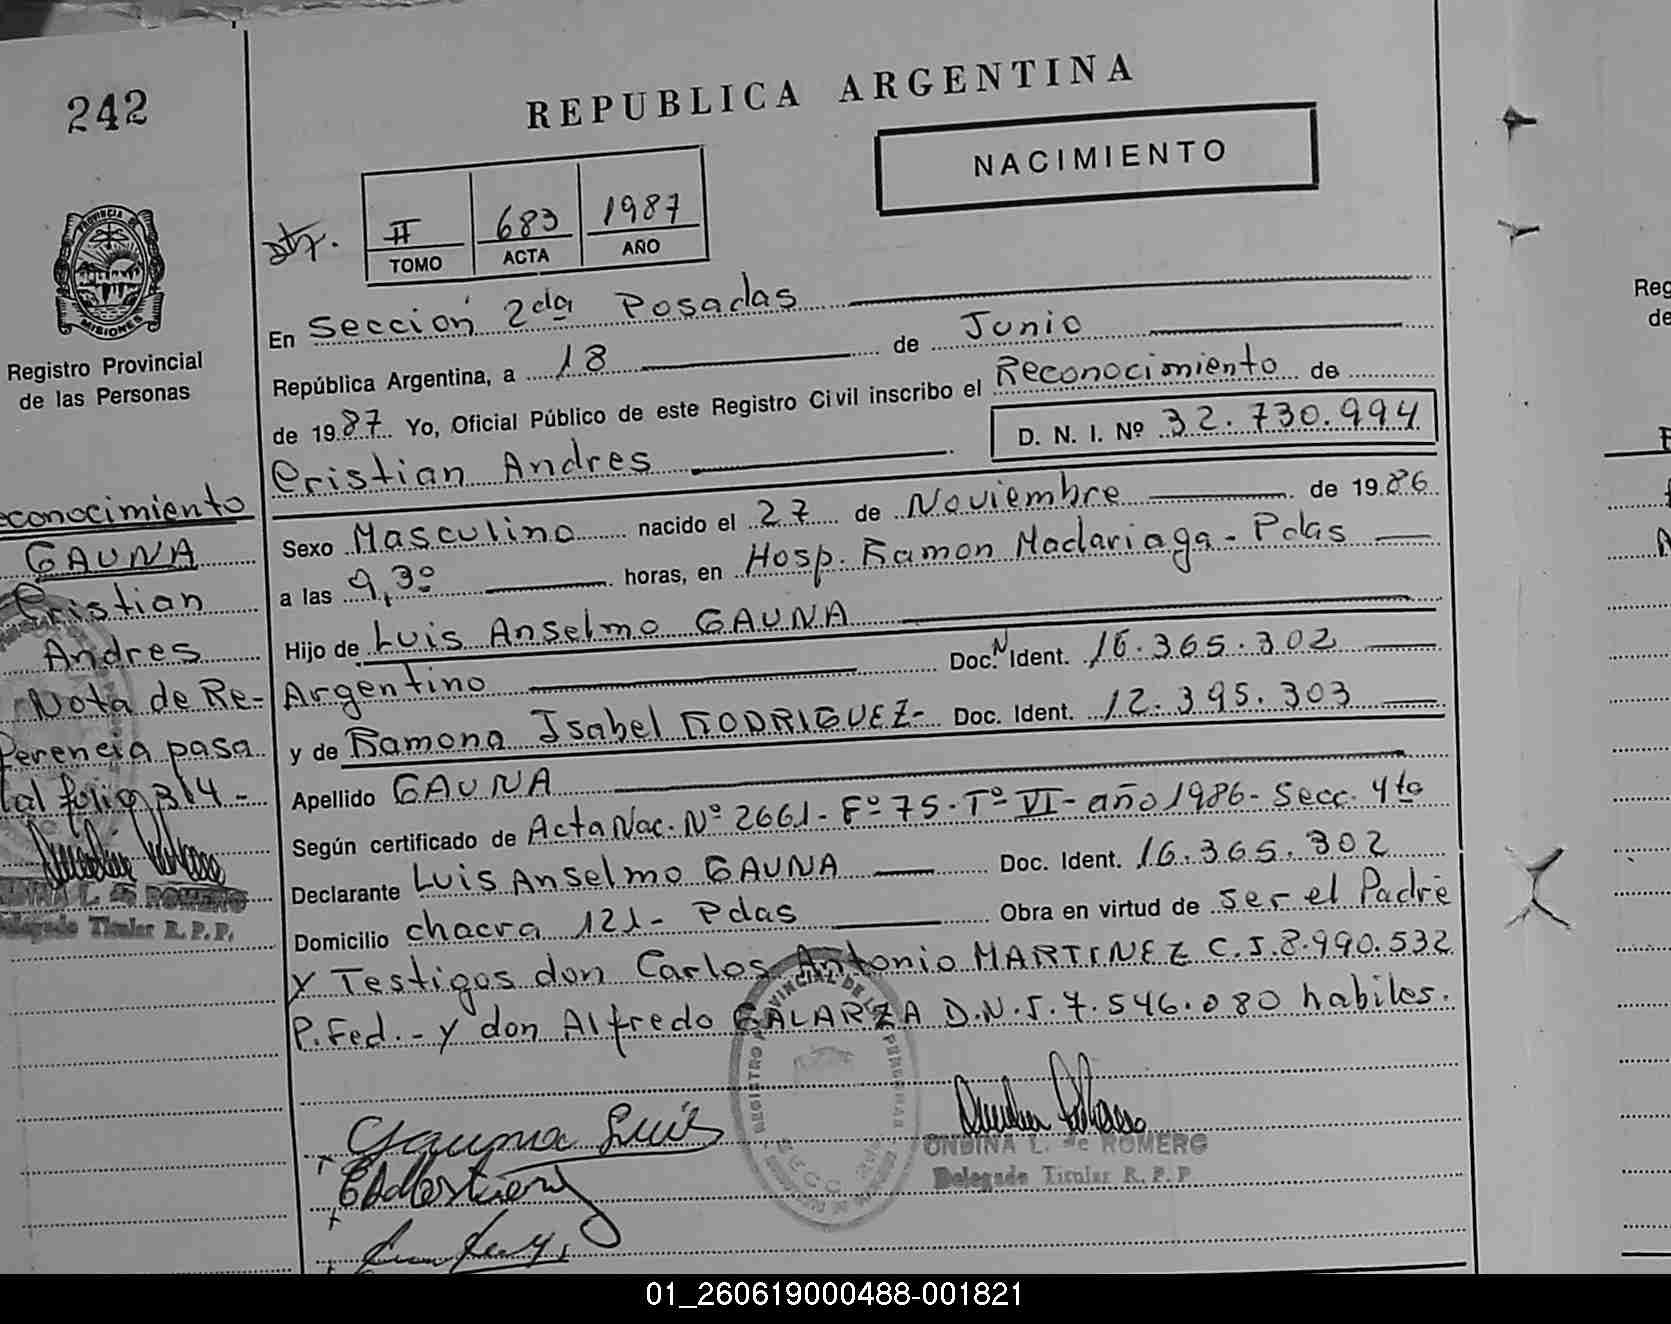 242
REPUBLICA ARGENTINA
NACIMIENTO
II 683 1987
TOMO ACTA AÑO
PROVINCIA DE MISIONES
Registro Provincial
de las Personas
En Sección 2da Posadas
República Argentina, a 18 de Junio
de 1987 Yo, Oficial Público de este Registro Civil inscribo el Reconocimiento de
D. N. I. Nº 32.730.994
Cristian Andres
Sexo Masculino nacido el 27 de Noviembre de 1986
a las 9,30 horas, en Hosp. Ramon Madariaga - Pdas
Hijo de Luis Anselmo GAUNA
Argentino Doc. N Ident. 16.365.302
y de Ramona Isabel RODRIGUEZ- Doc. Ident. 12.395.303
Apellido GAUNA
Según certificado de Acta Nac. Nº 2661- Fº 75- Tº VI- año 1986- Secc. 4to
Declarante Luis Anselmo GAUNA Doc. Ident. 16.365.302
Domicilio chacra 121- Pdas Obra en virtud de ser el Padre
y Testigos don Carlos Antonio MARTINEZ C.I. 8.990.532
P. Fed.- y don Alfredo GALARZA D.N.I. 7.546.080 habiles.
econocimiento
GAUNA
Cristian
Andres
Nota de Re-
ferencia pasa
al folio 314-
DINA L. de ROMERO
Delegado Titular R.P.P.
Gauna Luis
ONDINA L. de ROMERO
Delegado Titular R.P.P
REGISTRO PROVINCIAL DE LAS PERSONAS
Reg
de
01_260619000488-001821